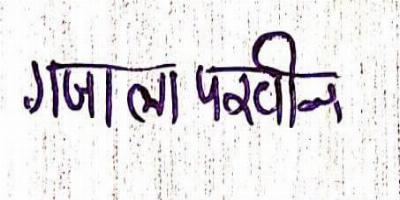 गजाला परवीन